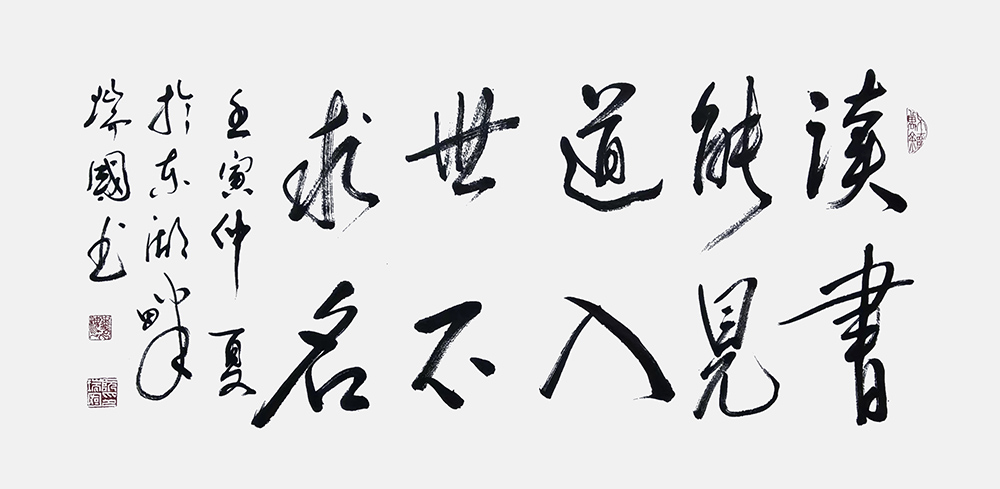 读書
能見
道入
世不
求名
壬寅仲夏
於东湖畔
瑞國书